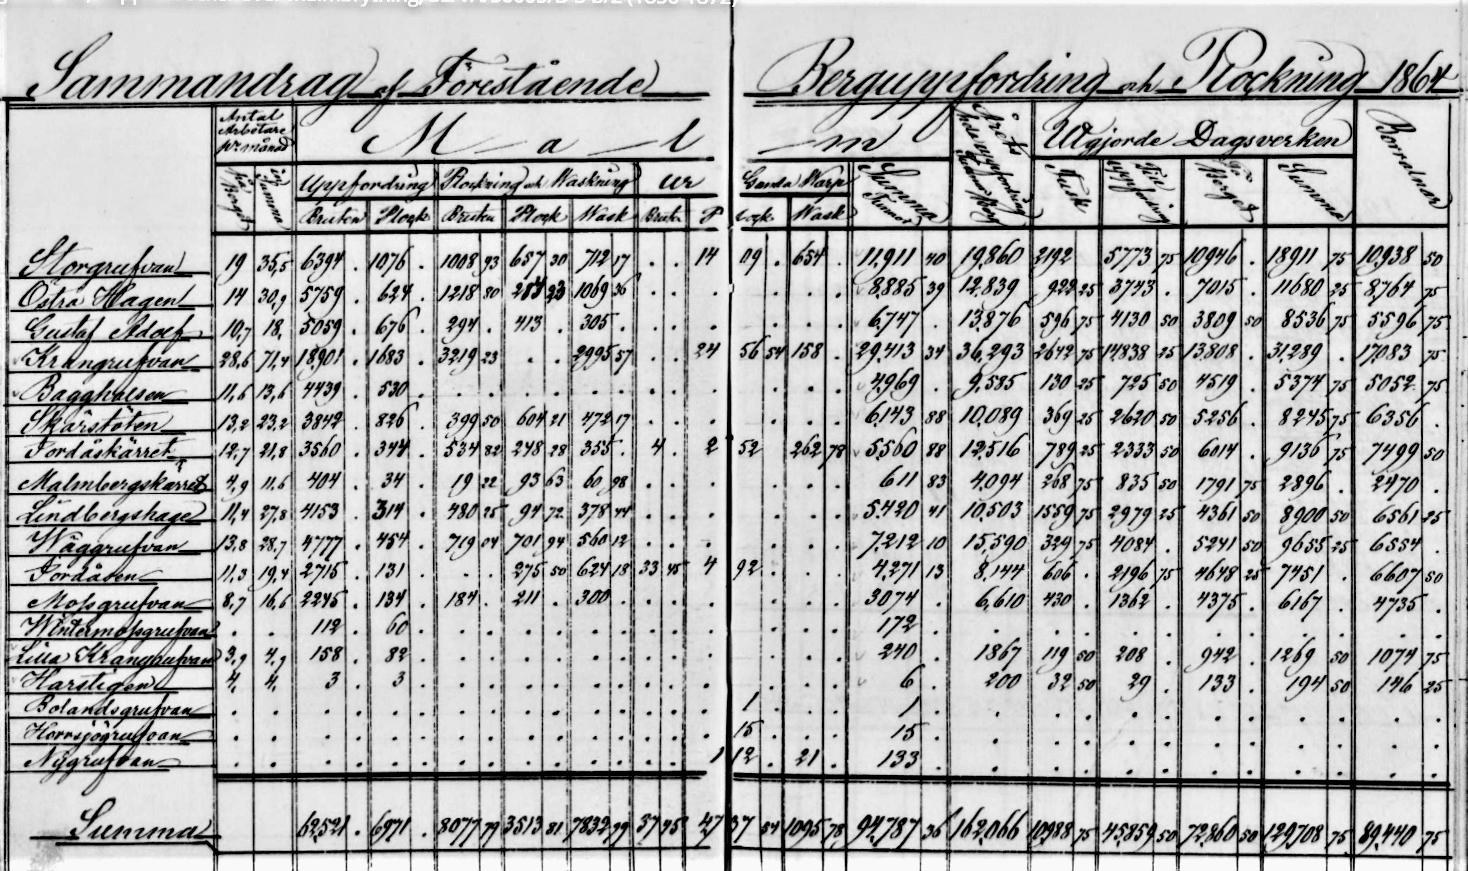 Sammandrag af Förestående Berguppfordring och Plockning 1864
Antal Arbetare pr månad M a l m Årets Utgjorde Dagsverken Borrelnar
Uppfordring Plockning och Waskning ur Gamla Warp Summa Tunnor Summa
Bruten Plock Bruten Plock Wask Bruten P lock Wask
Storgrufvan 19 35,5 6394 . 1076 . 1008 93 657 30 712 17 . . 14 09 . 654 . 11,911 40 19,860 2192 . 5773 75 10946 . 18911 75 10,938 50
Östra Hagen 14 30,9 5759 . 624 . 1218 80 214 23 1069 36 . . . . . . 8,885 39 12,839 922 25 3743 . 7015 . 11680 25 8,764 75
Gustaf Adolf 10,7 18, 5059 . 676 . 294 . 413 . 305 . . . . . . . 6,747 . 13,876 596 75 4130 50 3809 50 8536 75 5596 75
Krangrufvan 28,6 71,4 18,901 . 1683 . 3219 23 . . 2995 57 . . 24 56 54 158 . 29,413 34 36,293 2642 75 14838 25 13,808 . 31,289 . 17083 75
Bagghalsen 11,6 13,6 4439 . 530 . . . . . . . . . . . . 4,969 . 9,585 130 25 725 50 4519 . 5374 75 5052 75
Skärstöten 13,2 23,2 3842 . 826 . 399 50 604 21 472 17 . . . . . . 6,143 88 10,089 369 25 2620 50 5256 . 8245 75 6356 .
Jordåskärret 12,7 21,8 3560 . 344 . 534 82 248 28 355 . 4 . 2 52 262 78 5,560 88 12,516 789 25 2333 50 6014 . 9136 75 7499 50
Malmbergskärret 4,9 11,6 404 . 34 . 19 22 93 63 60 98 . . . . . . 611 83 4,094 268 75 835 50 1791 75 2896 . 2470 .
Lindbergshage 11,4 27,8 4153 . 314 . 480 25 94 72 378 44 . . . . . . 5,420 41 10,503 1559 75 2979 25 4361 50 8900 50 6561 25
Wäggrufvan 13,8 28,7 4777 . 454 . 719 04 701 94 560 12 . . . . . . 7,212 10 15,590 329 75 4084 . 5241 50 9655 25 6554 .
Jordåsen 11,3 19,4 2715 . 131 . . . 275 50 624 18 33 45 4 92 . . . 4,271 13 8,144 606 . 2196 75 4648 25 7451 . 6607 50
Mossgrufvan 8,7 16,6 2245 . 134 . 184 . 211 . 300 . . . . . . . 3074 . 6,610 430 . 1362 . 4375 . 6167 . 4735 .
Wintermossgrufvan . . 112 . 60 . . . . . . . . . . . . . 172 . . . . . . .
Lilla Krangrufvan 3,9 4,9 158 . 82 . . . . . . . . . . . . 240 . 1867 119 50 208 . 942 . 1269 50 1074 75
Harstigen 4, 4, 3 . 3 . . . . . . . . . . . . 6 . 200 32 50 29 . 133 . 194 50 146 25
Bolandsgrufvan . . . . . . . . . . . . . 1 . . . 1 . . . . . . .
Horrsjögrufvan . . . . . . . . . . . . . 15 . . . 15 . . . . . . .
Nygrufvan . . . . . . . . . . . . 1 12 . 21 . 133 . . . . . . .
Summa 62,521 . 6971 . 8077 79 3513 81 7832 99 37 45 47 37 54 1095 78 94,787 36 162,066 10,988 75 45,859 50 72,860 50 129,708 75 89,440 75